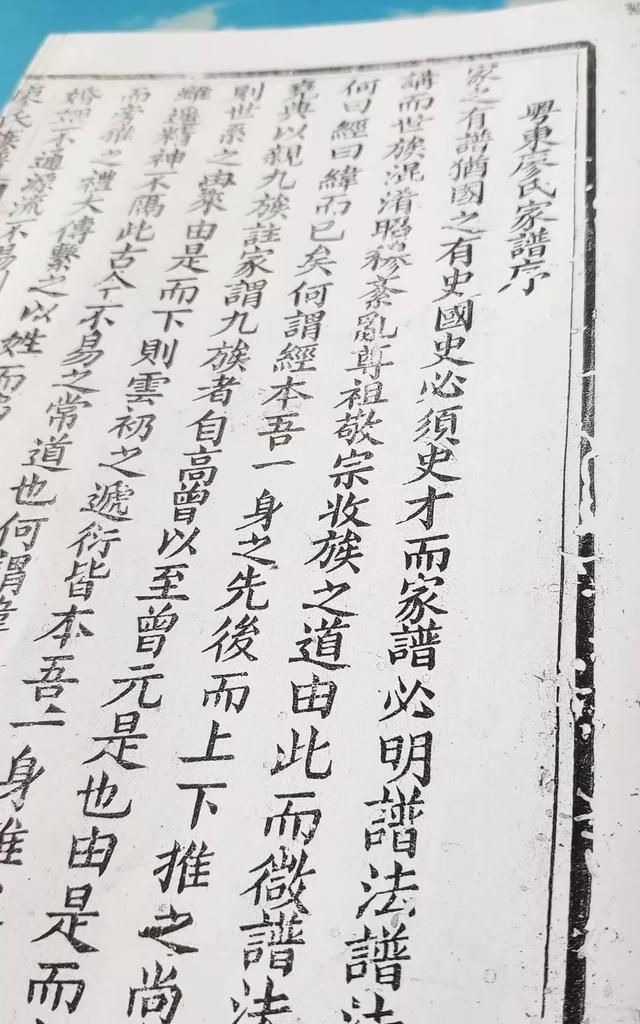 粤東廖氏家譜序
家之有譜猶國之有史國史必須史才而家譜必明譜法譜法
講而世族混淆昭穆紊亂尊祖敬宗收族之道由此而微譜法
何曰經曰緯而已矣何謂經本吾一身之先後而上下推之尚
堯典以親九族註家謂九族者自高曾以至曾元是也由是而
則世系之由來由是而下則雲礽之遞衍皆本吾一身推
雖遠精神不隔此古今不易之常道也何謂緯
而旁推之禮大傳繫之以姓而
婚姻不通源流不易